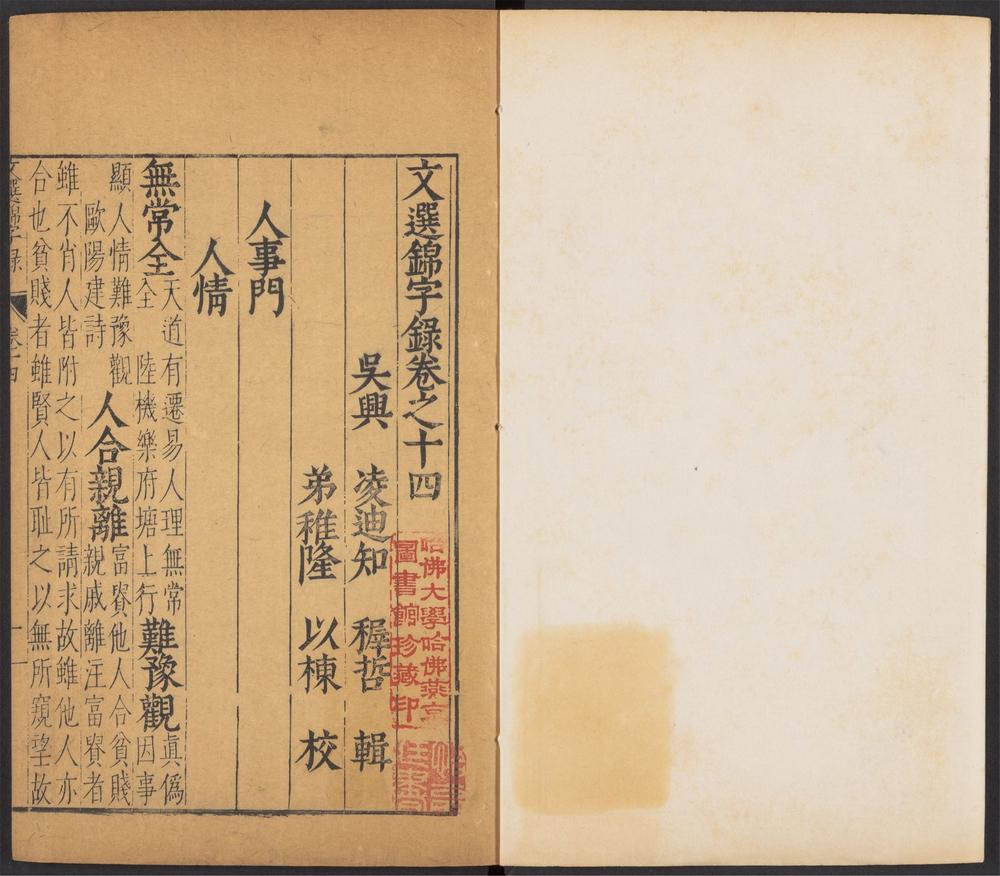 文選錦字錄卷之十四
吳興 凌迪知 穉哲 輯
弟稚隆 以棟 校
人事門
人情
無常仝 天道有遷易人理無常
仝 陸機樂府塘上行 難豫觀 真偽
因事
顯人情難豫觀
歐陽建詩 人合親離 富貴他人合貧賤
親戚離注富貴者
雖不肖人皆附之以有所請求故雖他人亦
合也貧賤者雖賢人皆耻之以無所窺望故
文選錦字錄 卷十四 一
哈佛大學哈佛燕京
圖書館珍藏印